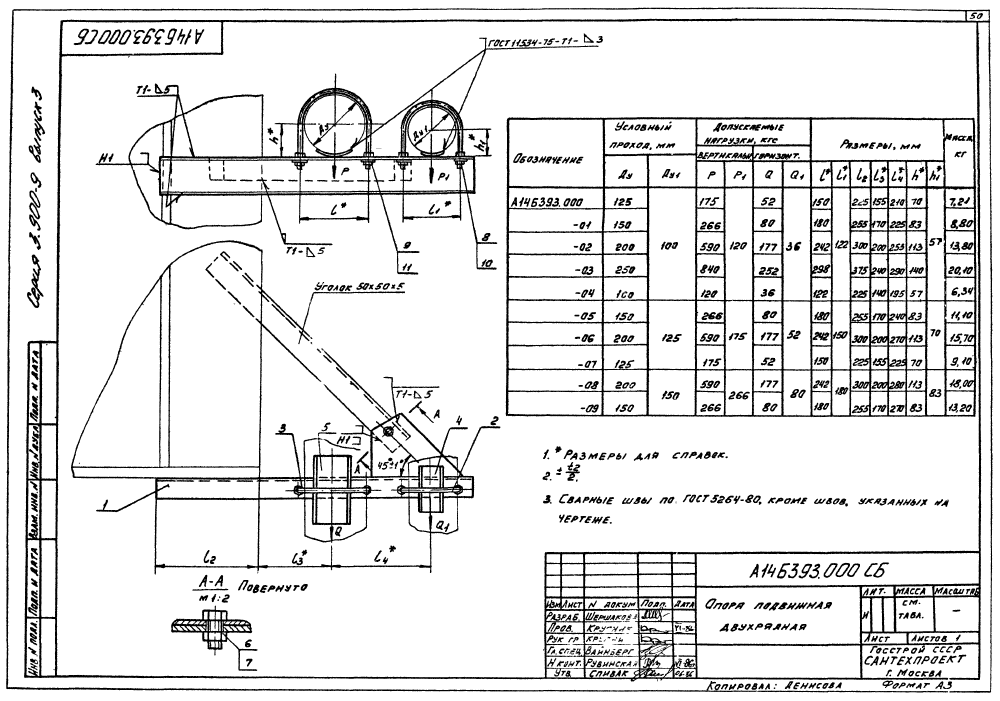 50
А14Б393.000 СБ
Серия 3.900-9 Выпуск 3
ГОСТ 11534-75-Т1-◺3
Т1-◺5
Н1
Ду
Ду1
h*
h1*
P
P1
l*
l1*
9
11
8
10
Т1-◺5
Уголок 50х50х5
Т1-◺5
А
3
5
Н1
4
2
А
45°±1°
1
Q
Q1
l2
l3*
l4*
А-А Повернуто
М 1:2
6
7
Обозначение
Условный проход, мм
Допускаемые нагрузки, кгс
Размеры, мм
Масса, кг
вертикальн. горизонт.
Ду Ду1 P P1 Q Q1 l* l1* l2 l3* l4* h* h1*
А14Б393.000 125 175 52 150 225 155 210 70 7,21
-01 150 266 80 180 255 170 225 83 8,80
-02 200 100 590 120 177 36 242 122 300 200 255 113 57 13,80
-03 250 840 252 298 375 240 290 140 20,10
-04 100 120 36 122 225 140 195 57 6,34
-05 150 266 80 180 255 170 240 83 11,10
-06 200 125 590 175 177 52 242 150 300 200 270 113 70 15,70
-07 125 175 52 150 225 155 225 70 9,10
-08 200 150 590 266 177 80 242 180 300 200 280 113 83 18,00
-09 150 266 80 180 255 170 270 83 13,20
1. * Размеры для справок.
2. ± t2/2.
3. Сварные швы по ГОСТ 5264-80, кроме швов, указанных на
чертеже.
А14Б393.000 СБ
Изм Лист N докум Подп. Дата
Разраб. Шершакова
Пров.
Рук гр
Гл. спец. Вайнберг
Н конт. Рубинская
Утв. Спивак
Опора подвижная
двухрядная
Лит. Масса Масштаб
И см. табл. –
Лист Листов 1
Госстрой СССР
САНТЕХПРОЕКТ
г. Москва
Копировал: Денисова Формат А3
Инв N подл. Подп. и дата Взам. инв. N Инв. N дубл. Подп. и дата